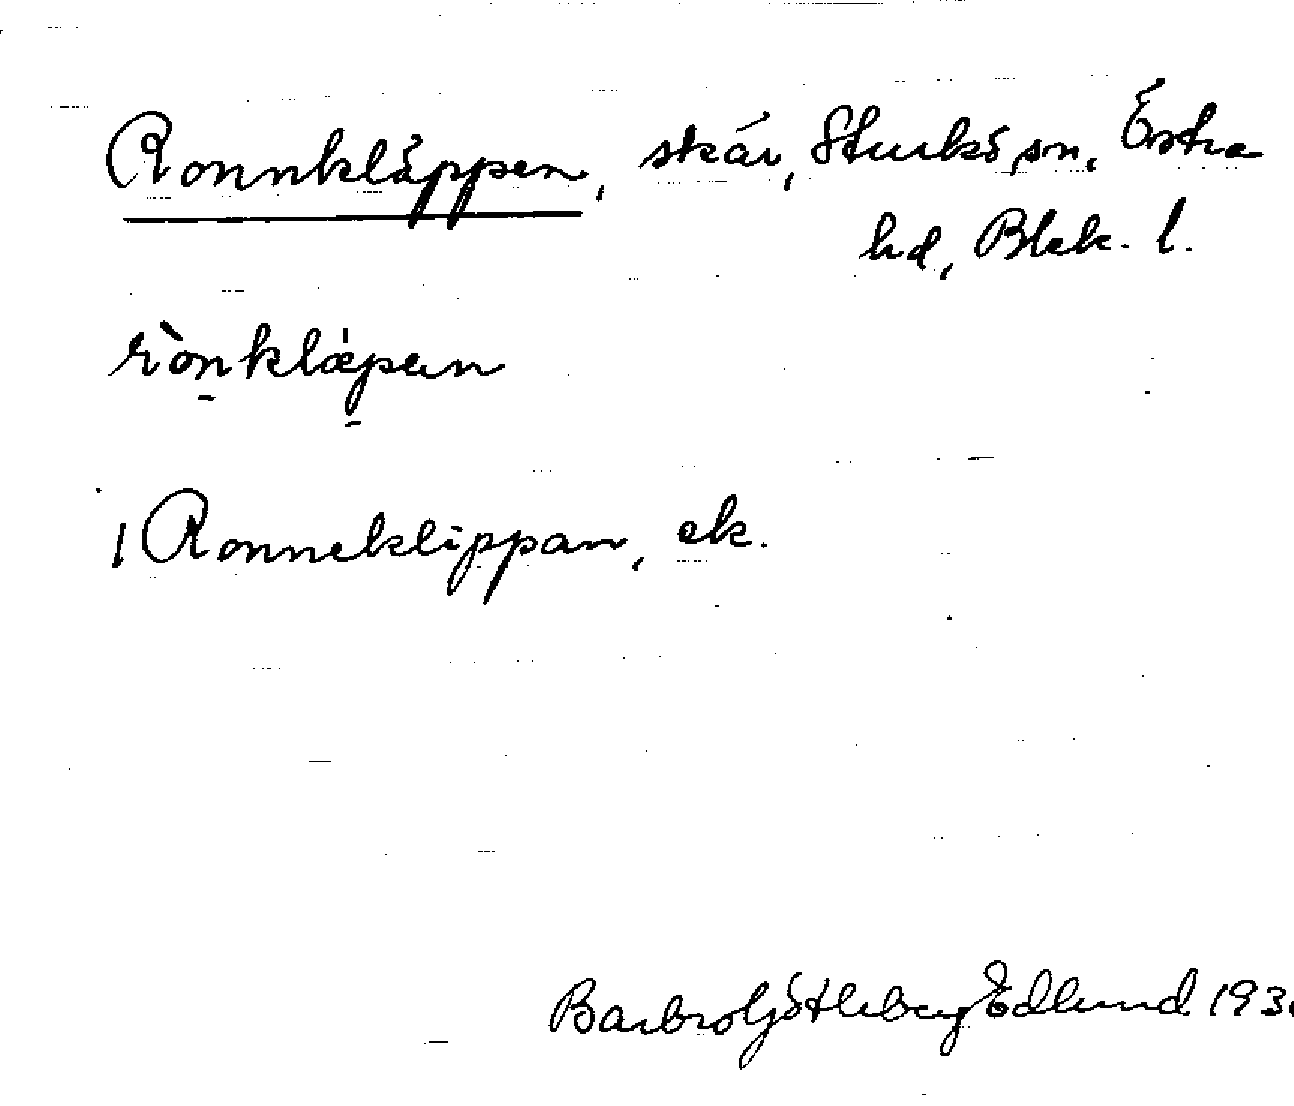 Ronnkläppen, skär, Sturkö sn, Östra
hd, Blek. l.
rònklæpen
1 Ronneklippan, ek.
Barbro Götleberg Edlund 193